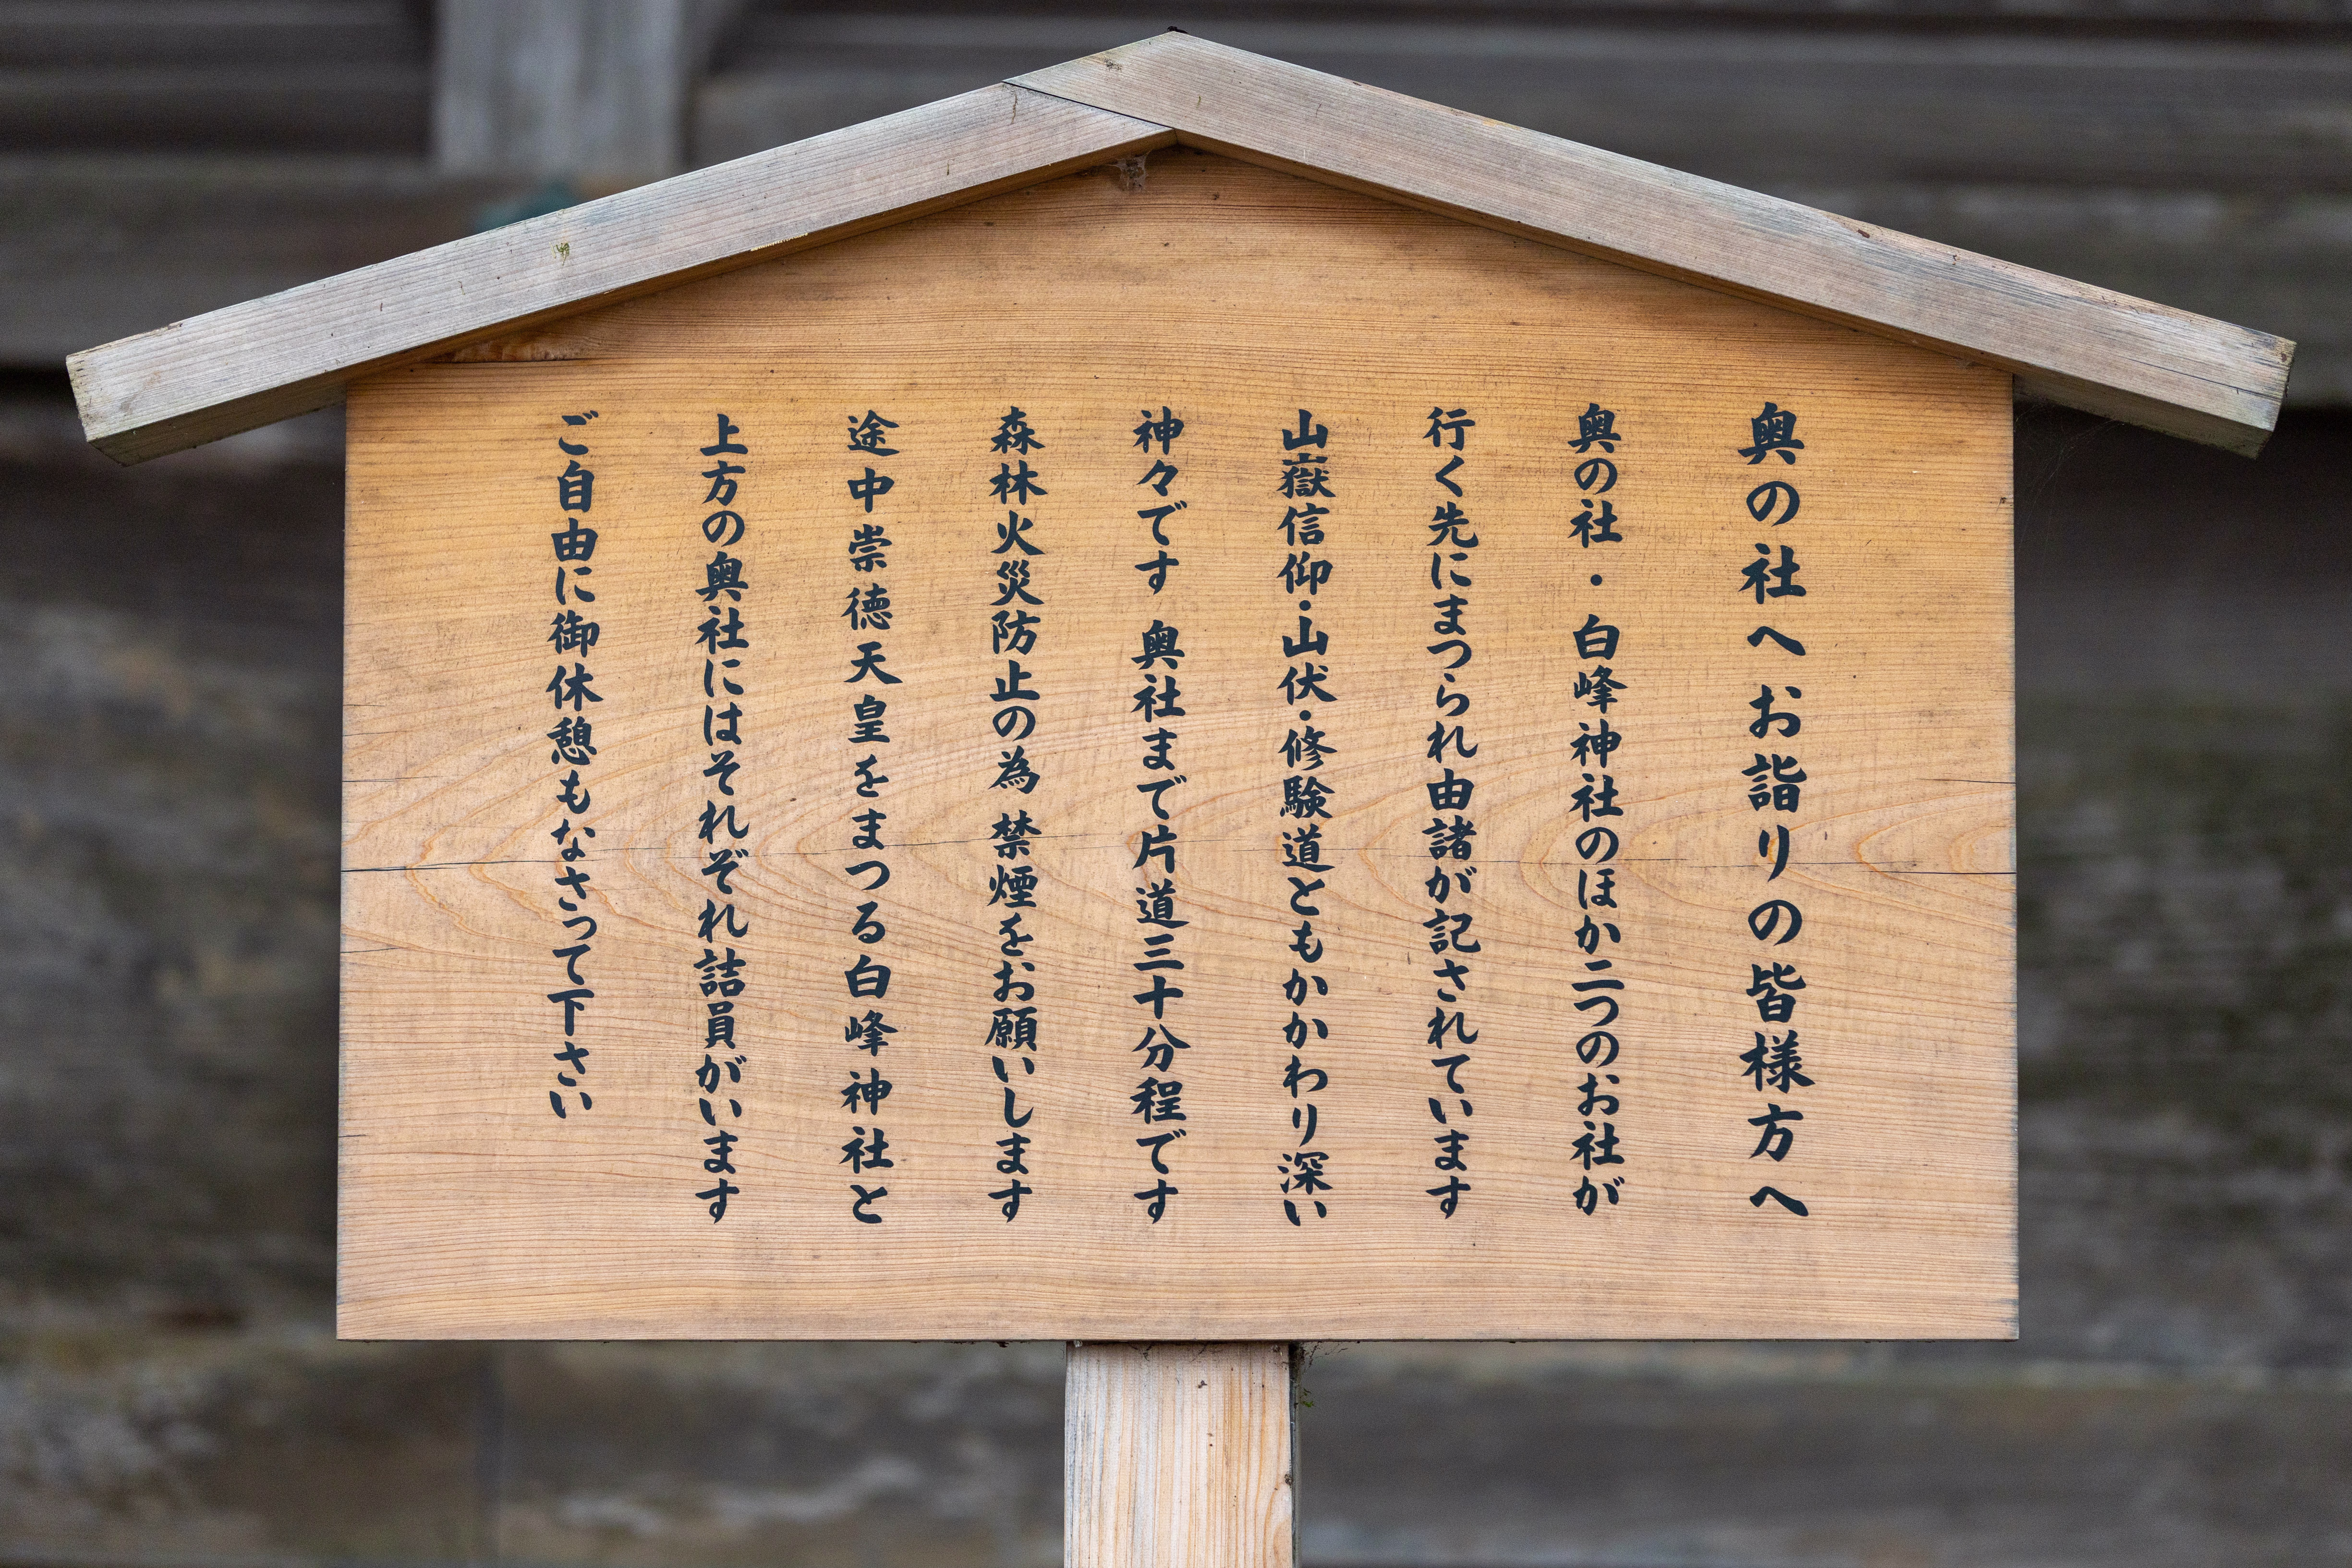 奥の社へお詣りの皆様方へ
奥の社・白峰神社のほか二つのお社が
行く先にまつられ由諸が記されています
山嶽信仰・山伏・修験道ともかかわり深い
神々です 奥社まで片道三十分程です
森林火災防止の為 禁煙をお願いします
途中崇徳天皇をまつる白峰神社と
上方の奥社にはそれぞれ詰員がいます
ご自由に御休憩もなさって下さい